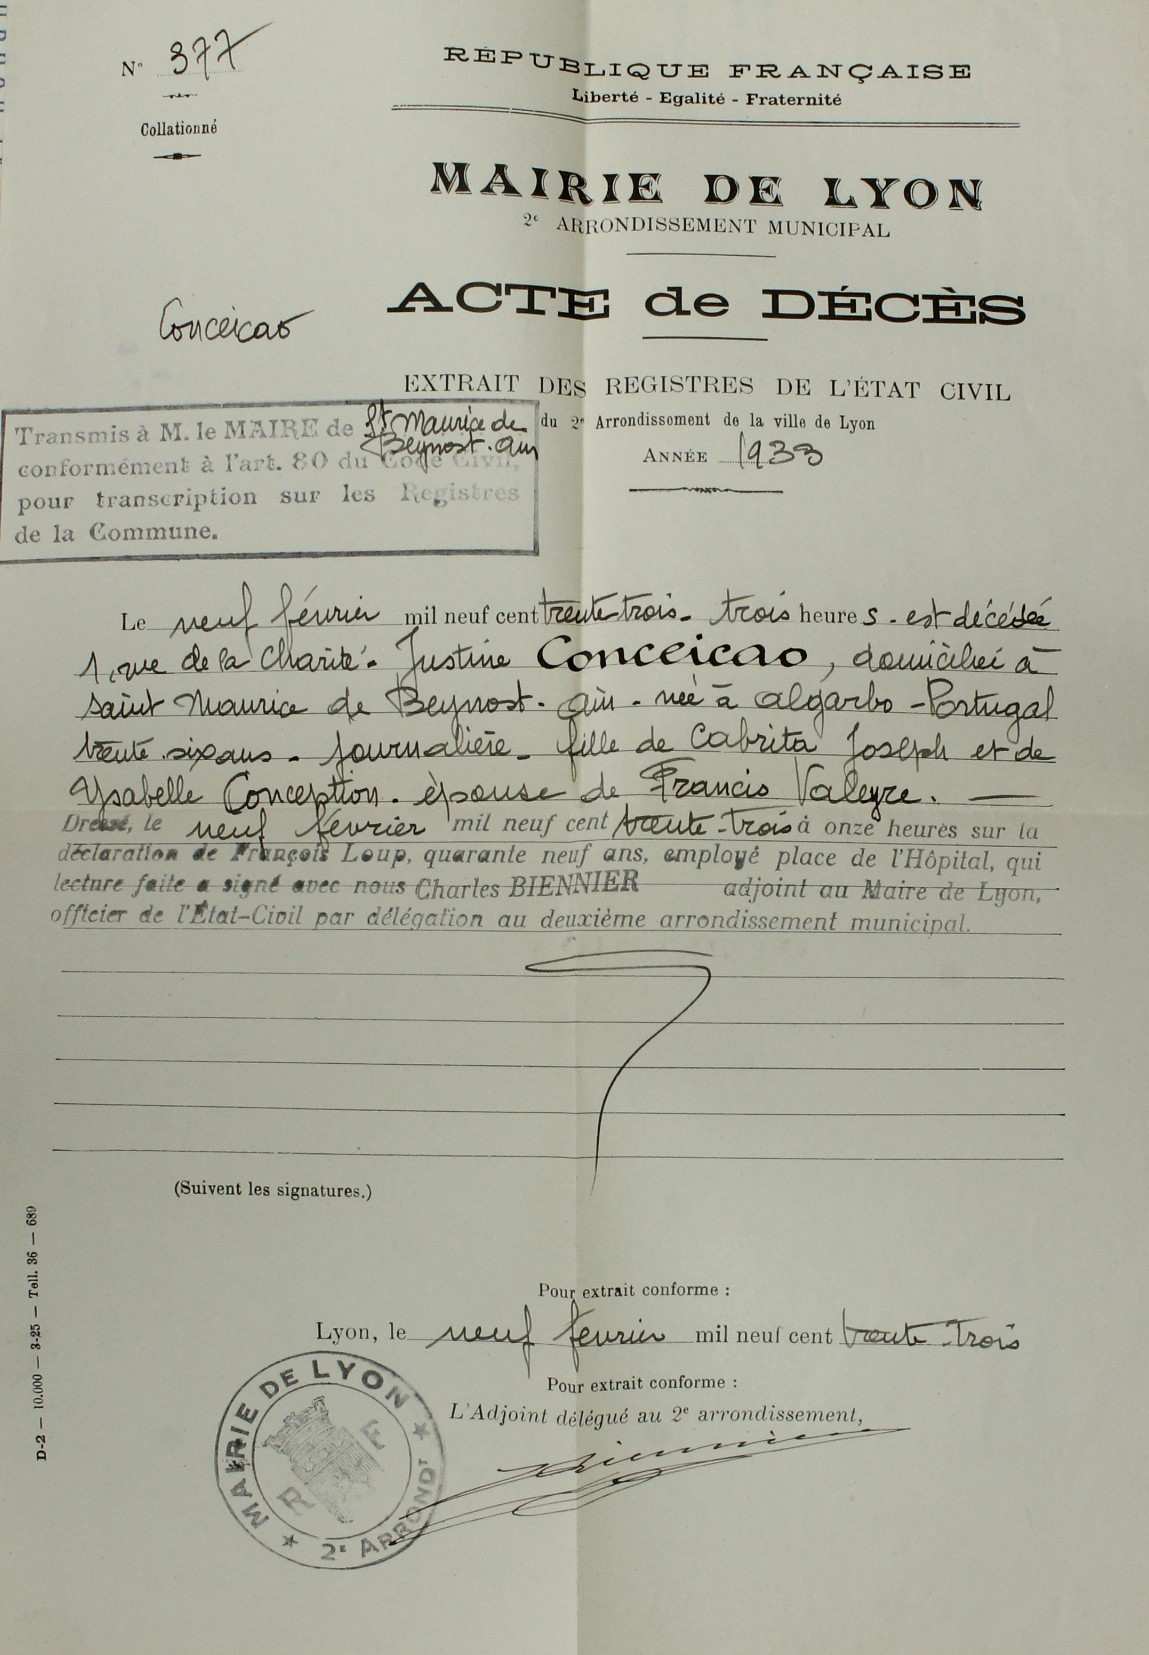 N° 377
Collationné
RÉPUBLIQUE FRANÇAISE
Liberté - Egalité - Fraternité
MAIRIE DE LYON
2e ARRONDISSEMENT MUNICIPAL
ACTE de DÉCÈS
Conceicao
EXTRAIT DES REGISTRES DE L'ÉTAT CIVIL
du 2e Arrondissement de la ville de Lyon
ANNÉE 1933
Transmis à M. le MAIRE de St Maurice de
Beynost. ain
conformément à l'art. 80 du Code Civil,
pour transcription sur les Registres
de la Commune.
Le neuf février mil neuf cent trente trois. trois heures. est décédée
1, rue de la Charité. Justine Conceicao, domicilieé à
Saint Maurice de Beynost. ain. née à algarbo - Portugal
trente six ans. journalière. fille de Cabrita Joseph et de
Ysabelle Conception. épouse de Francis Valeyre. —
Dressé, le neuf février mil neuf cent trente-trois à onze heures sur la
déclaration de François Loup, quarante neuf ans, employé place de l'Hôpital, qui
lecture faite a signé avec nous Charles BIENNIER adjoint au Maire de Lyon,
officier de l'État-Civil par délégation au deuxième arrondissement municipal.
(Suivent les signatures.)
Pour extrait conforme :
Lyon, le neuf février mil neuf cent trente-trois
Pour extrait conforme :
L'Adjoint délégué au 2e arrondissement,
Biennier
MAIRIE DE LYON
R F
2e ARRONDT
D-2 — 10.000 — 3-25 — Tell. 36 — 689